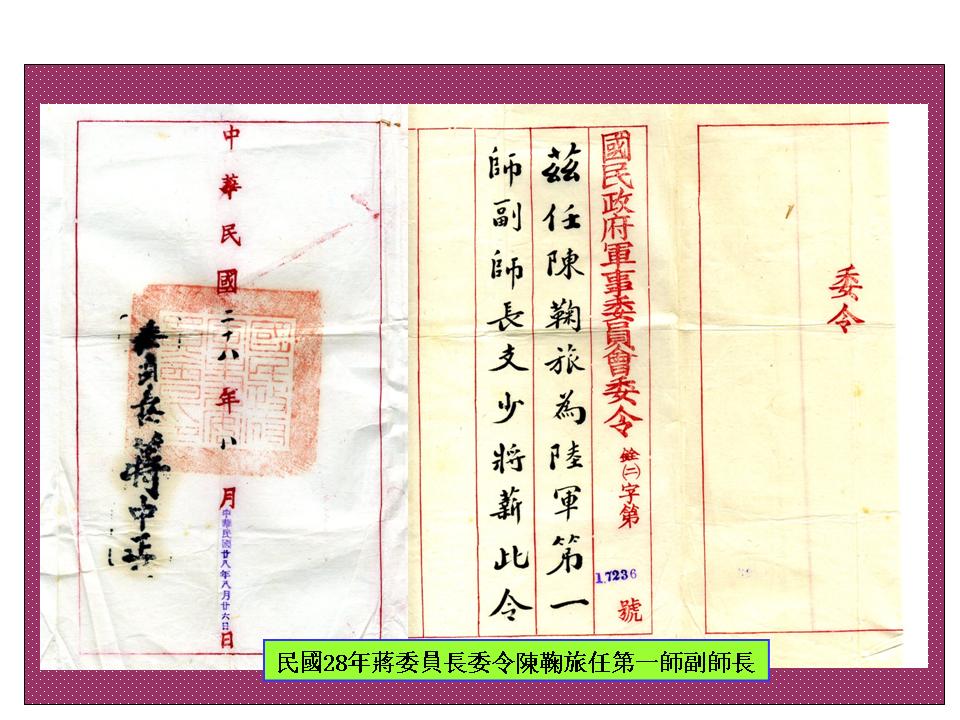 委令
國民政府軍事委員會委令 銓㈡字第17236號
茲任陳鞠旅為陸軍第一
師副師長支少將薪此令
中華民國二十八年八月日
中華民國廿八年八月廿六日
委員長蔣中正
民國28年蔣委員長委令陳鞠旅任第一師副師長